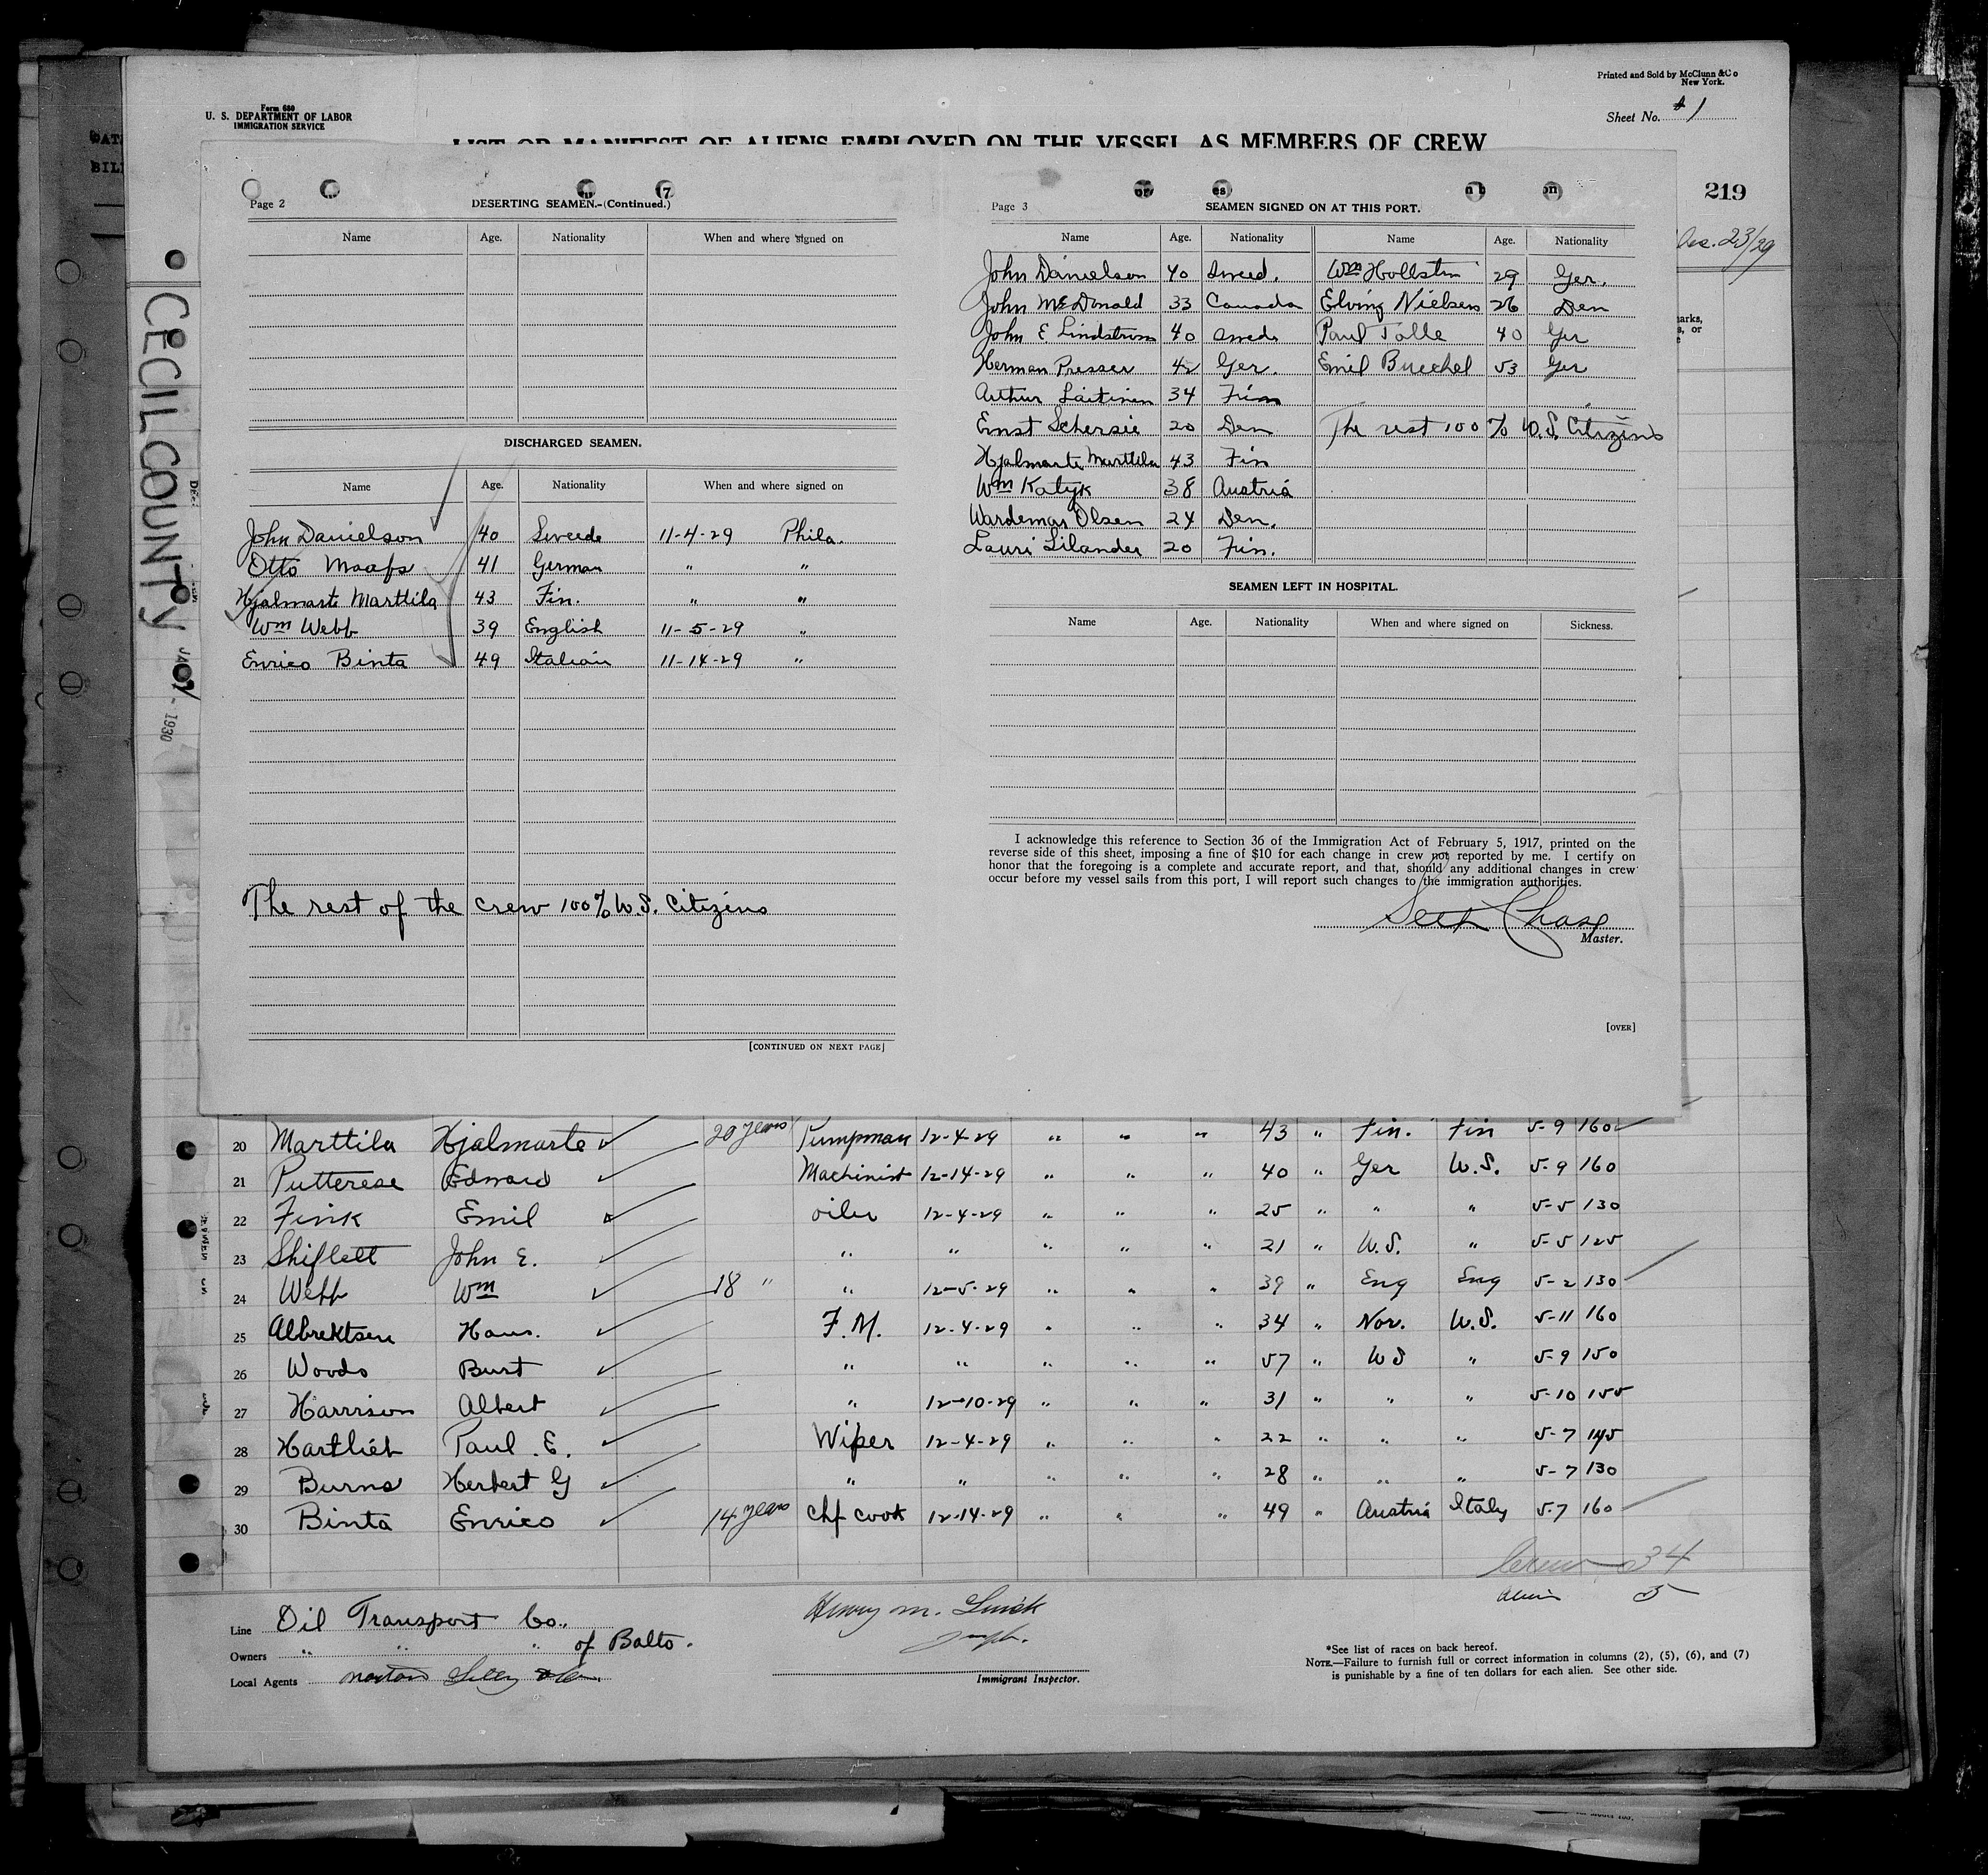 Printed and Sold by McClunn & Co
New York.
Form 680
U. S. DEPARTMENT OF LABOR
IMMIGRATION SERVICE
Sheet No. 1
LIST OR MANIFEST OF ALIENS EMPLOYED ON THE VESSEL AS MEMBERS OF CREW
219
Dec. 23/29
CECIL COUNTY
1930
Page 2
DESERTING SEAMEN.-(Continued.)
Name Age. Nationality When and where signed on
DISCHARGED SEAMEN.
Name Age. Nationality When and where signed on
John Danielson 40 Sweede 11-4-29 Phila.
Otto Maafs 41 German " "
Hjalmarte Marttila 43 Fin. " "
Wm Webb 39 English 11-5-29 "
Enrico Binta 49 Italian 11-14-29 "
The rest of the crew 100% U.S. Citizens
[CONTINUED ON NEXT PAGE]
Page 3
SEAMEN SIGNED ON AT THIS PORT.
Name Age. Nationality Name Age. Nationality
John Danielson 40 Sweed. Wm Hollstin 29 Ger.
John McDonald 33 Canada Elving Nielsen 26 Den
John E Lindstrom 40 Swede Paul Tolle 40 Ger
Herman Presser 42 Ger. Emil Buechel 53 Ger
Arthur Laitinen 34 Finn
Ernst Schersie 20 Den The rest 100% U.S. Citizens
Hjalmarte Marttila 43 Fin
Wm Katyk 38 Austria
Wardemar Olsen 24 Den.
Lauri Silander 20 Fin.
SEAMEN LEFT IN HOSPITAL.
Name Age. Nationality When and where signed on Sickness.
I acknowledge this reference to Section 36 of the Immigration Act of February 5, 1917, printed on the
reverse side of this sheet, imposing a fine of $10 for each change in crew not reported by me. I certify on
honor that the foregoing is a complete and accurate report, and that, should any additional changes in crew
occur before my vessel sails from this port, I will report such changes to the immigration authorities.
Seth Chase
Master.
[OVER]
20 Marttila Hjalmarte 20 years Pumpman 12-4-29 " " " 43 " Fin. Fin 5-9 160
21 Putterese Edward Machinist 12-14-29 " " " 40 " Ger U.S. 5-9 160
22 Fink Emil oiler 12-4-29 " " " 25 " " " 5-5 130
23 Shiflett John E. " " " " " 21 " U.S. " 5-5 125
24 Webb Wm 18 " " 12-5-29 " " " 39 " Eng Eng 5-2 130
25 Albrektsen Hans. F.M. 12-4-29 " " " 34 " Nor. U.S. 5-11 160
26 Woods Burt " " " " " 57 " US " 5-9 150
27 Harrison Albert " 12-10-29 " " " 31 " " " 5-10 155
28 Hartlieb Paul E. Wiper 12-4-29 " " " 22 " " " 5-7 145
29 Burns Herbert G " " " " " 28 " " " 5-7 130
30 Binta Enrico 14 years Chf cook 12-14-29 " " " 49 " Austria Italy 5-7 160
Crew 34
Alien 5
Line Oil Transport Co.,
Owners " " " of Balto.
Local Agents Norton Lilly & Co.
Henry M.
Immigrant Inspector.
*See list of races on back hereof.
NOTE.—Failure to furnish full or correct information in columns (2), (5), (6), and (7)
is punishable by a fine of ten dollars for each alien. See other side.